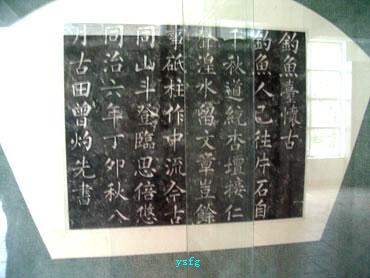 釣魚臺懷古
釣魚人已往片石自
千秋道統杏壇接仁
湟水留文章豈餘
事砥柱作中流今古
同山斗登臨思倍悠
同治六年丁卯秋八
月古田曾灼先書
ysfg